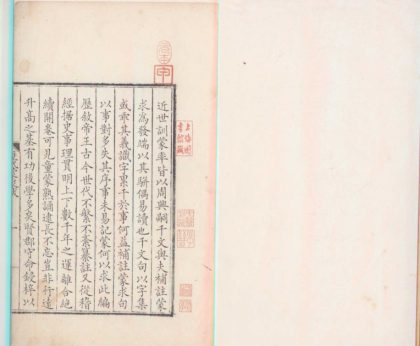 近世訓蒙率皆以周興嗣千文與夫補註蒙
求為發端以其駢偶易讀也千文句以字集
或乖其義識字累千於事何益補註蒙求句
以事對多失其序事未易記蒙何以求此編
歷敘帝王古今世代不繁不紊纂註又從稽
經據史事理貫明上下數千年之運離合絶
續開卷可見童蒙熟誦逮長不忘豈非行遠
升高之基有功後學多矣賢郡守命鋟梓以